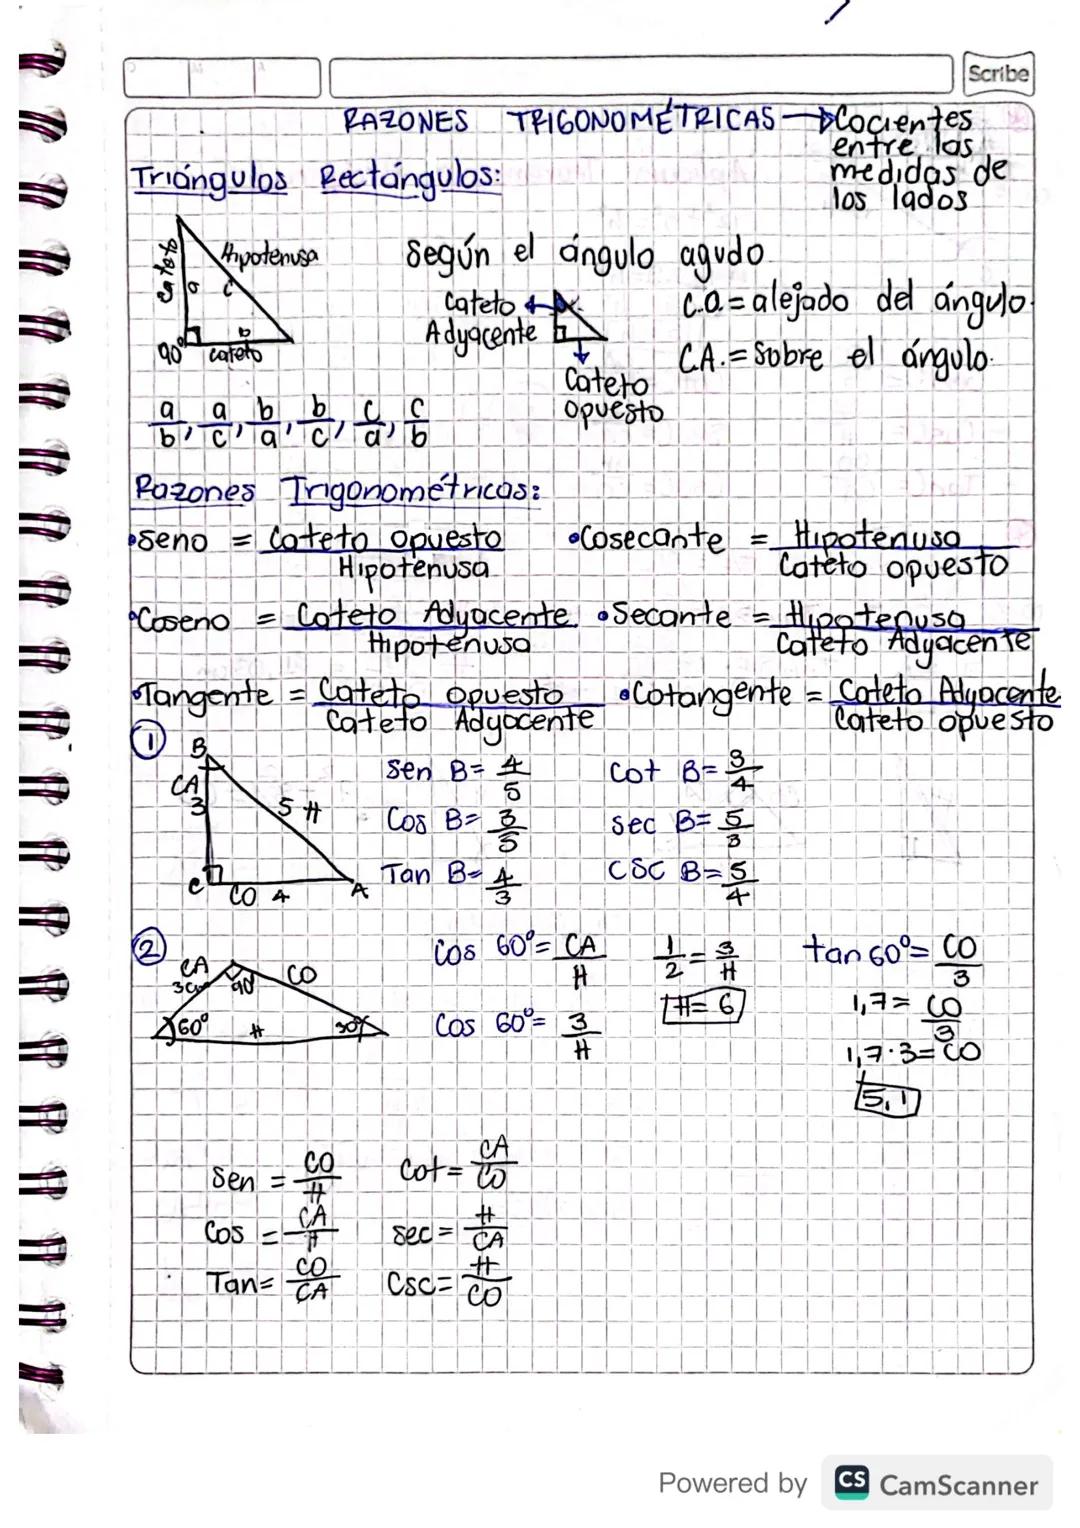 Scribe
RAZONES TRIGONOMÉTRICAS → Cocientes
entre las
medidas de
los lados
Triángulos Rectángulos:
Cateto a
Hipotenusa c
90° b cateto
Según el ángulo agudo.
Cateto
Adyacente
Cateto
opuesto
C.O. = alejado del ángulo.
C.A. = Sobre el ángulo.
a/b, a/c, b/a, b/c, c/a, c/b
Razones Trigonométricas:
•Seno = Cateto opuesto / Hipotenusa
•Cosecante = Hipotenusa / Cateto opuesto
•Coseno = Cateto Adyacente / Hipotenusa
•Secante = Hipotenusa / Cateto Adyacente
•Tangente = Cateto opuesto / Cateto Adyacente
•Cotangente = Cateto Adyacente / Cateto opuesto
1
B
CA
3
5 H
C
CO 4
A
Sen B = 4/5
Cot B = 3/4
Cos B = 3/5
sec B = 5/3
Tan B = 4/3
CSC B = 5/4
2
CA
3cm
90
CO
60°
H
30°
Cos 60° = CA/H
1/2 = 3/H
tan 60° = CO/3
Cos 60° = 3/H
H = 6
1,7 = CO/3
1,7 · 3 = CO
5,1
Sen = CO/H
Cot = CA/CO
Cos = CA/H
sec = H/CA
Tan = CO/CA
Csc = H/CO
Powered by CS CamScanner